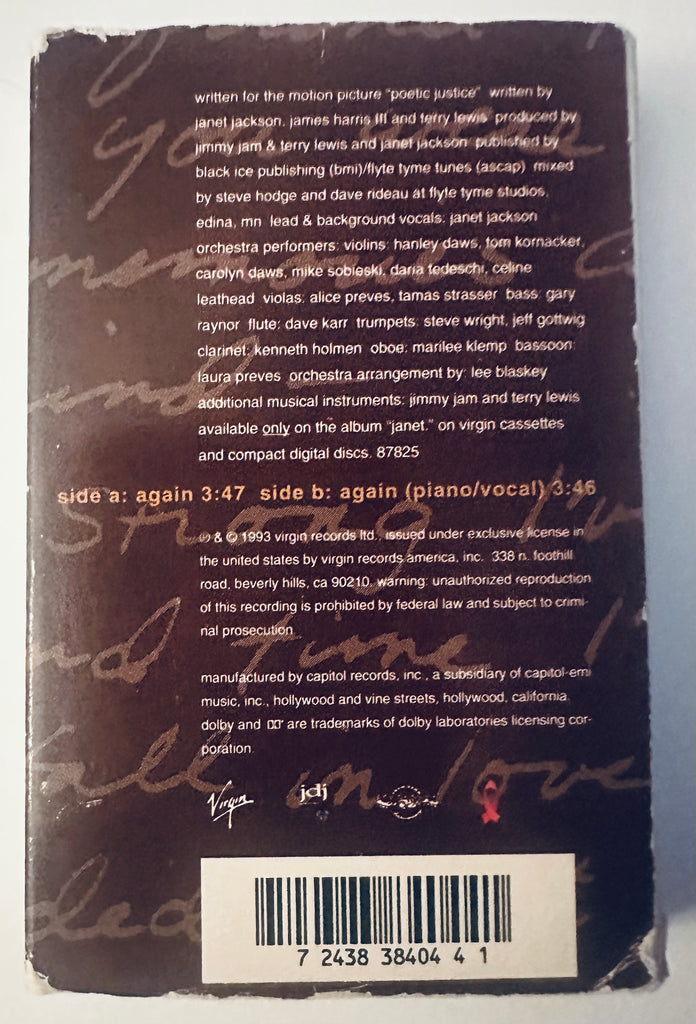 written for the motion picture "poetic justice" written by
janet jackson, james harris III and terry lewis produced by
jimmy jam & terry lewis and janet jackson published by
black ice publishing (bmi)/flyte tyme tunes (ascap) mixed
by steve hodge and dave rideau at flyte tyme studios,
edina, mn lead & background vocals: janet jackson
orchestra performers: violins: hanley daws, tom kornacker,
carolyn daws, mike sobieski, daria tedeschi, celine
leathead violas: alice preves, tamas strasser bass: gary
raynor flute: dave karr trumpets: steve wright, jeff gottwig
clarinet: kenneth holmen oboe: marilee klemp bassoon:
laura preves orchestra arrangement by: lee blaskey
additional musical instruments: jimmy jam and terry lewis
available only on the album "janet." on virgin cassettes
and compact digital discs. 87825
side a: again 3:47 side b: again (piano/vocal) 3:46
℗ & © 1993 virgin records ltd., issued under exclusive license in
the united states by virgin records america, inc. 338 n. foothill
road, beverly hills, ca 90210. warning: unauthorized reproduction
of this recording is prohibited by federal law and subject to crimi-
nal prosecution.
manufactured by capitol records, inc., a subsidiary of capitol-emi
music, inc., hollywood and vine streets, hollywood, california.
dolby and are trademarks of dolby laboratories licensing cor-
poration.
Virgin jdj
7 2438 38404 4 1
you
memories
and
Strong I'v
nd time I
fall in love
ded